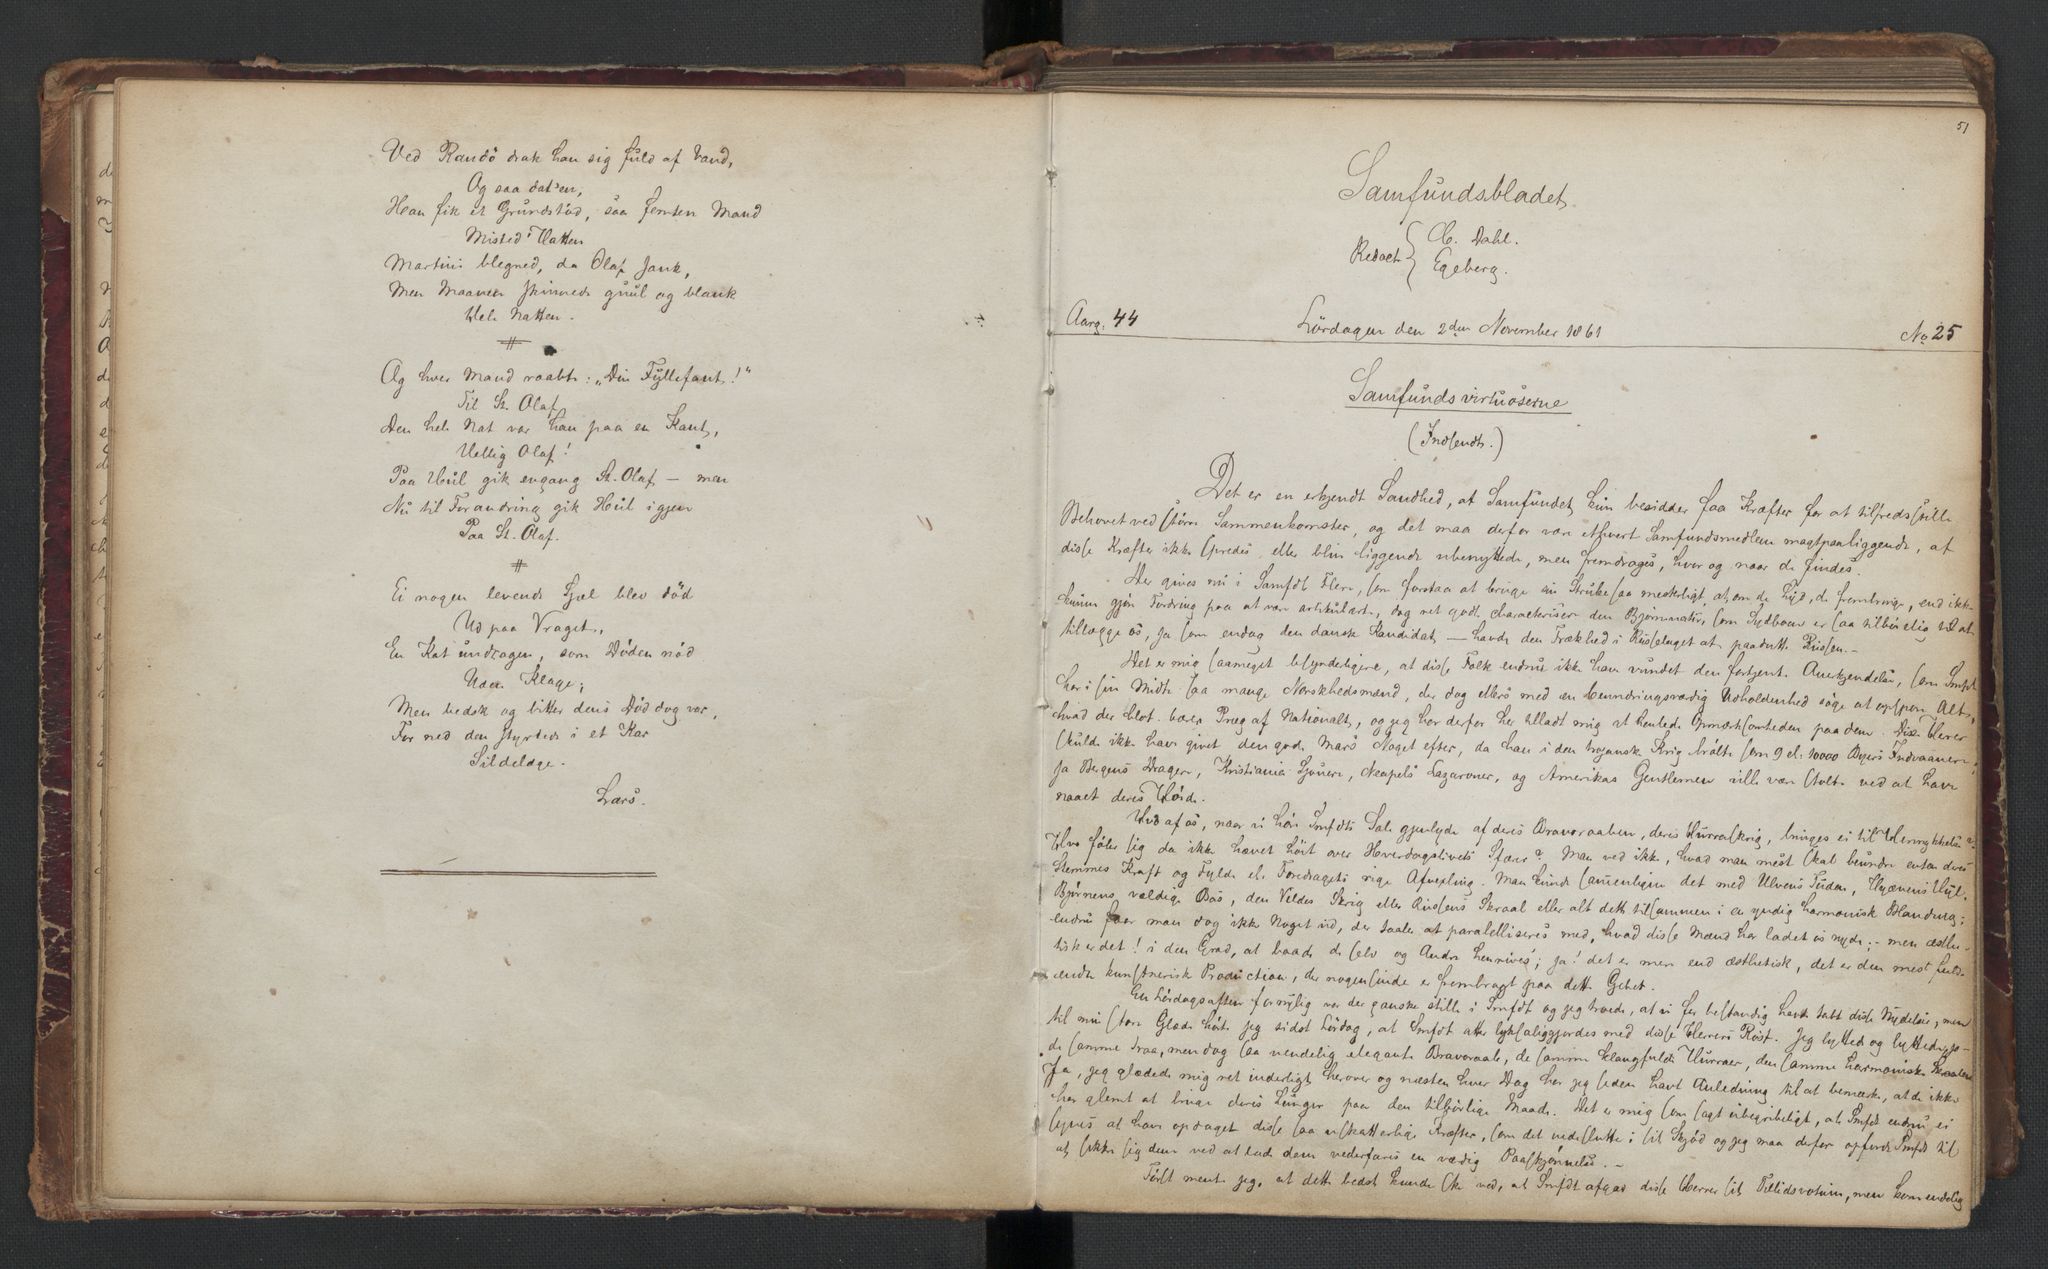 Ved Randö drak han sig fuld af Vand,
Og saa dat'en,
Han fik et Grundstöd, saa femten Mand
Misted' Hatten
Martini blegned, da Olaf sank,
Men Maanen skinnede guul og blank
Hele Natten.
Og hver Mand raabte: „Din Fyllefant!"
Til St. Olaf
Den hele Nat var han paa en Kant,
Hellig Olaf!
Paa Hul gik engang St. Olaf – men
Nu til Forandring gik Hul igjen
Paa St. Olaf.
Ei nogen levende Sjæl blev död
Ud paa Vraget,
En Kat undtagen, som Döden nöd
Uden Klage;
Men bedsk og bitter dens Död dog var,
For ned den styrtede i et Kar
Sildelage.
Lars.
51
Samfundsbladet
Redact Dahl.
Egeberg.
Aarg: 44 Lördagen den 2den November 1861 No 25
Samfundsvirtuoserne
(Indsendt.)
Det er en erkjendt Sandhed, at Samfundet kun besidder faa Kræfter for at tilfredsstille
Behovet ved större Sammenkomster, og det maa derfor være ethvert Samfundsmedlem magtpaaliggende, at
disse Kræfter ikke spredes eller blive liggende ubenyttede, men fremdrages, hvor og naar de findes.
Der gives nu i Samfdt Flere, som forstaa at bruge sin Strube saa mesterligt, at om de Lyd, de frembringe, end ikke
kunne gjöre Fordring paa at være artikulerte, dog ret godt characterisere den Björnenatur, som Sydboen er saa tilböielig til at
tillægge os, ja som endog den danske Kandidat — havde den Frækhed i Russelaget at paadutte Russen. –
Det er mig saameget besynderligere, at disse Folk endnu ikke have vundet den fortjente Anerkjendelse, som Smfdt
har i sin Midte saa mange Norskhedsmænd, der dog ellers med en beundringsværdig Udholdenhed söge at opspore Alt,
hvad der blot bærer Præg af Nationalt, og jeg har derfor her tilladt mig at henlede Opmærksomheden paa dem. Disse Herrer
skulde ikke have givet den gode Mars Noget efter, da han i den trojanske Krig brölte som 9 el. 10000 Byers Indvaanere;
ja Bergens Dragere, Kristiania Sjouere, Neapels Lazaroner, og Amerikas Gentlemen ville være stolte ved at have
naaet deres Höide.
Hvo af os, naar vi höre Smfdts Sale gjenlyde af deres Bravoraaben, deres Hurraskrig, bringes ei til Henrykkelse?
Hvo föler sig da ikke hævet höit over Hverdagslivets Sfære? Man ved ikke, hvad man mest skal beundre enten deres
Stemmes Kraft og Fylde el. Foredragets rige Afvexling. Man kunde sammenligne det med Ulvens Tuden, Hyænens Hul,
Björnens vældige Bas, den Vildes Skrig eller Russens Skraal eller alt dette tilsammen i en yndig harmonisk Blanding;
endnu faar man dog ikke Noget ud, der taaler at paralelliseres med, hvad disse Mænd har ladet os nyde; – men æsthe-
tisk er det! i den Grad, at baade de selv og Andre henrives; ja! det er mere end æsthetisk, det er den mest fuld-
endte kunstneriske Production, der nogensinde er frembragt paa dette Gebet.
En Lördagsaften fornylig var der ganske stille i Smfdt og jeg troede, at vi for bestandig havde tabt disse Nydelser, men
til min store Glæde hörte jeg sidst Lördag, at Smfdt atter lyksaliggjordes med disse Herrers Röst. Jeg lyttede og lyttede, jo –
de samme raa, men dog saa uendelig elegante Bravoraab, de samme klangfulde Hurraer, den samme harmoniske Skraalen
Ja, jeg glædede mig ret inderligt herover og næsten hver Dag har jeg siden havt Anledning til at bemærke, at de ikke
har glemt at bruge deres Lunger paa den tilbörlige Maade. Det er mig som sagt ubegribeligt, at Smfdt endnu ei
synes at have opdaget disse saa uskatterlige Kræfter, som det indeslutter i sit Skjöd og jeg maa derfor opfordre Smfdt til
at sikkre sig dem ved at lade dem vederfares en værdig Paaskjönnelse. –
Först mente jeg, at dette bedst kunde ske ved, at Smfdt afgav disse Herrer sit Tillidsvotum, men kom endelig